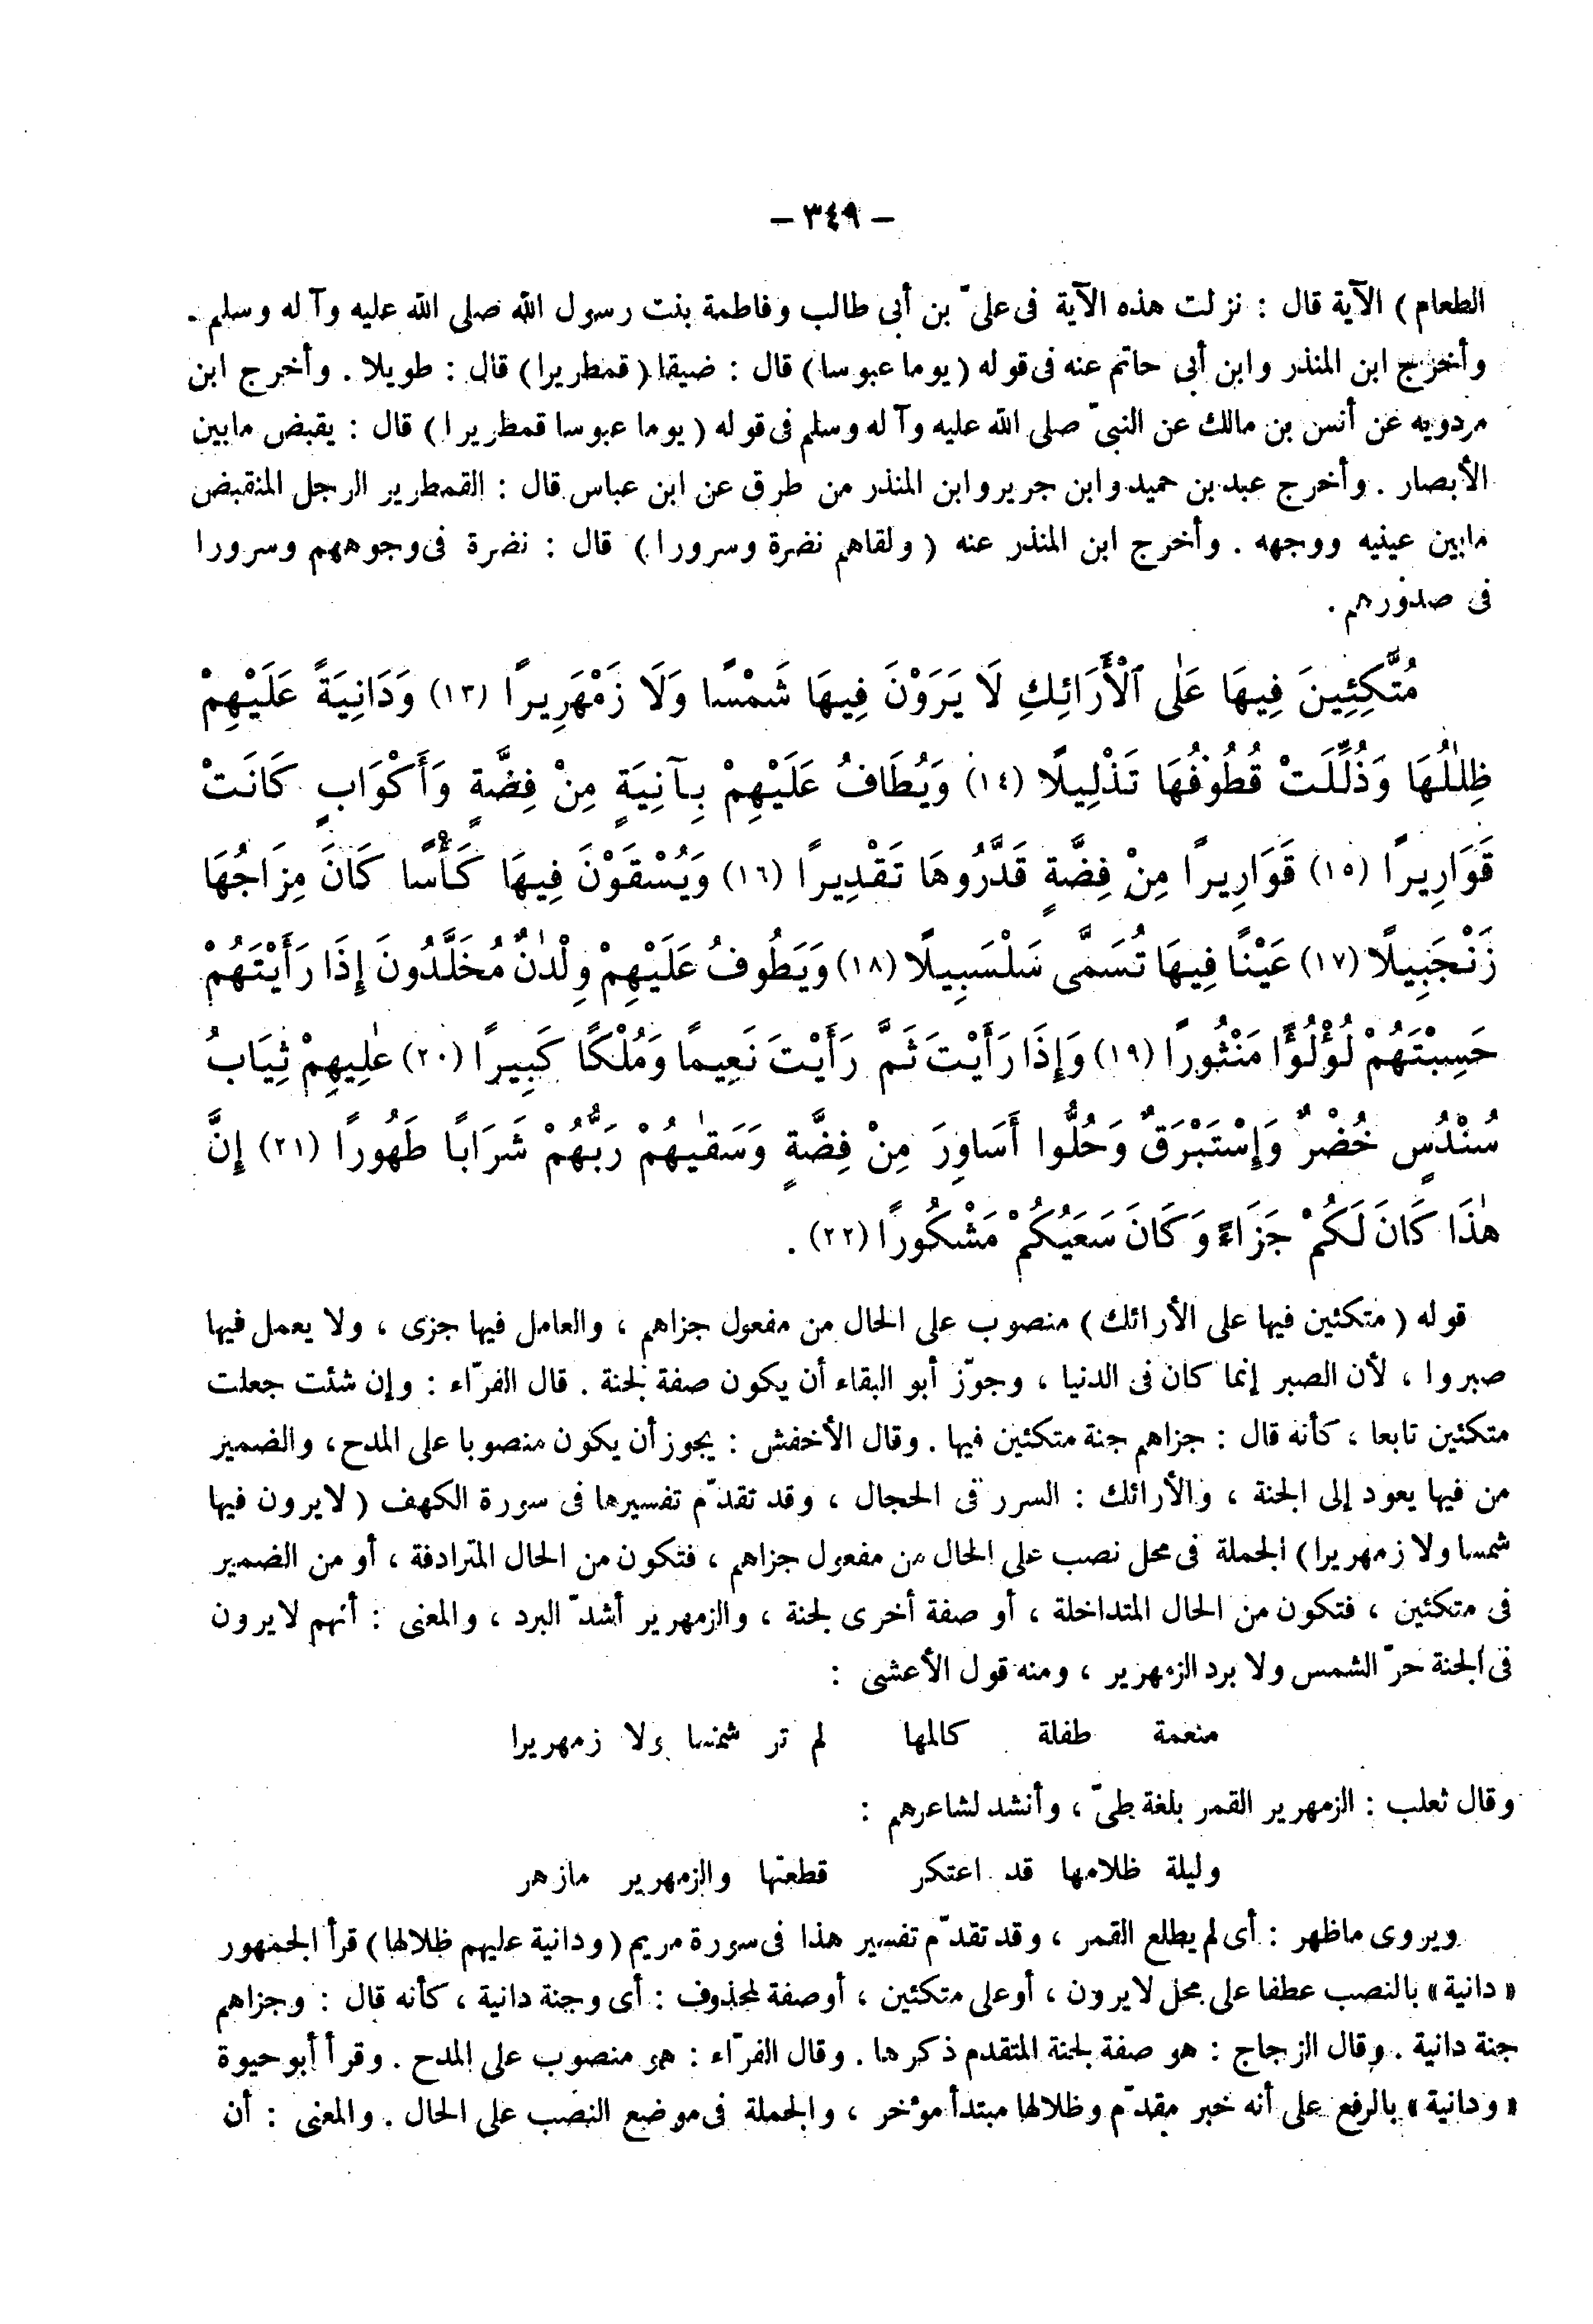 – ٣٤٩ –
الطعام ) الآية قال : نزلت هذه الآية فى علىّ بن أبى طالب وفاطمة بنت رسول الله صلى الله عليه وآ له وسلم .
وأخرج ابن المنذر وابن أبى حاتم عنه فى قوله ( يوما عبوسا ) قال : ضيقا ( قمطريرا ) قال : طويلا . وأخرج ابن
مردويه عن أنس بن مالك عن النبىّ صلى الله عليه وآ له وسلم فى قوله ( يوما عبوسا قمطريرا ) قال : يقبض مابين
الأبصار . وأخرج عبد بن حميد وابن جرير وابن المنذر من طرق عن ابن عباس قال : القمطرير الرجل المنقبض
مابين عينيه ووجهه . وأخرج ابن المنذر عنه ( ولقاهم نضرة وسرورا ) قال : نضرة فى وجوههم وسرورا
فى صدورهم .
مُتَّكِئِينَ فِيهَا عَلَى ٱلْأَرَائِكِ لَا يَرَوْنَ فِيهَا شَمْسًا وَلَا زَمْهَرِيرًا (١٣) وَدَانِيَةً عَلَيْهِمْ
ظِلٰلُهَا وَذُلِّلَتْ قُطُوفُهَا تَذْلِيلًا (١٤) وَيُطَافُ عَلَيْهِمْ بِـآنِيَةٍ مِنْ فِضَّةٍ وَأَكْوَابٍ كَانَتْ
قَوَارِيرًا (١٥) قَوَارِيرًا مِنْ فِضَّةٍ قَدَّرُوهَا تَقْدِيرًا (١٦) وَيُسْقَوْنَ فِيهَا كَأْسًا كَانَ مِزَاجُهَا
زَنْجَبِيلًا (١٧) عَيْنًا فِيهَا تُسَمَّى سَلْسَبِيلًا (١٨) وَيَطُوفُ عَلَيْهِمْ وِلْدٰنٌ مُخَلَّدُونَ إِذَا رَأَيْتَهُمْ
حَسِبْتَهُمْ لُؤْلُؤًا مَنْثُورًا (١٩) وَإِذَا رَأَيْتَ ثَمَّ رَأَيْتَ نَعِيمًا وَمُلْكًا كَبِيرًا (٢٠) عٰلِيهِمْ ثِيَابُ
سُنْدُسٍ خُضْرٌ وَإِسْتَبْرَقٌ وَحُلُّوا أَسَاوِرَ مِنْ فِضَّةٍ وَسَقٰيهُمْ رَبُّهُمْ شَرَابًا طَهُورًا (٢١) إِنَّ
هٰذَا كَانَ لَكُمْ جَزَاءً وَكَانَ سَعَيُكُمْ مَشْكُورًا (٢٢) .
قوله ( متكئين فيها على الأرائك ) منصوب على الحال من مفعول جزاهم ، والعامل فيها جزى ، ولا يعمل فيها
صبروا ، لأن الصبر إنما كان فى الدنيا ، وجوّز أبو البقاء أن يكون صفة لجنة . قال الفرّاء : وإن شئت جعلت
متكئين تابعا ، كأنه قال : جزاهم جنة متكئين فيها . وقال الأخفش : يجوز أن يكون منصوبا على المدح ، والضمير
من فيها يعود إلى الجنة ، والأرائك : السرر فى الحجال ، وقد تقدّم تفسيرها فى سورة الكهف ( لايرون فيها
شمسا ولا زمهريرا ) الجملة فى محل نصب على الحال من مفعول جزاهم ، فتكون من الحال المترادفة ، أو من الضمير
فى متكئين ، فتكون من الحال المتداخلة ، أو صفة أخرى لجنة ، والزمهرير أشدّ البرد ، والمعنى : أنهم لايرون
فى الجنة حرّ الشمس ولا برد الزمهرير ، ومنه قول الأعشى :
منعمة طفلة كالمها لم تر شمسا ولا زمهريرا
وقال ثعلب : الزمهرير القمر بلغة طىّ ، وأنشد لشاعرهم :
وليلة ظلامها قد اعتكر قطعتها والزمهرير مازهر
ويروى ماظهر : أى لم يطلع القمر ، وقد تقدّم تفسير هذا فى سورة مريم ( ودانية عليهم ظلالها ) قرأ الجمهور
« دانية » بالنصب عطفا على محل لايرون ، أو على متكئين ، أو صفة لمحذوف : أى وجنة دانية ، كأنه قال : وجزاهم
جنة دانية . وقال الزجاج : هو صفة لجنة المتقدم ذكرها . وقال الفرّاء : هو منصوب على المدح . وقرأ أبو حيوة
« ودانية » بالرفع على أنه خبر مقدّم وظلالها مبتدأ مؤخر ، والجملة فى موضع النصب على الحال . والمعنى : أن